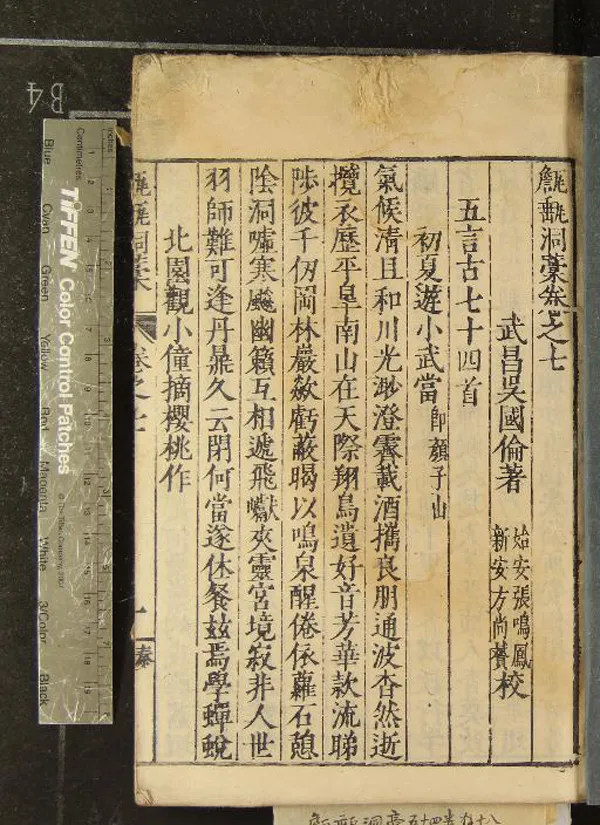 甔甀洞藁卷之七
武昌吳國倫著
始安張鳴鳳
新安方尚贇
校
五言古七十四首
初夏遊小武當即顏子山
氣候清且和川光渺澄霽載酒攜良朋通波杳然逝
攬衣歷平皐南山在天際翔鳥遺好音芳華款流睇
陟彼千仞岡林巖欻虧蔽暘以鳴泉醒倦依蘿石憩
陰洞噓寒飈幽籟互相遞飛巘夾靈宮境寂非人世
羽師難可逢丹鼎久云閉何當遂休餐玆焉學蟬蛻
北園觀小僮摘櫻桃作
卷之七
一
秦
B4
inches
Centimetres
TIFFEN Color Control Patches
© The Tiffen Company, 2007
Blue
Cyan
Green
Yellow
Red
Magenta
White
3/Color
Black